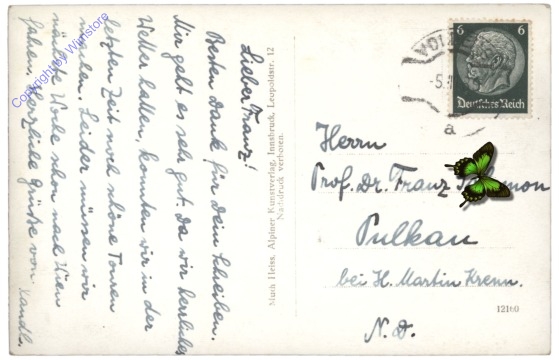 Lieber Franz!
Besten Dank für Dein Schreiben.
Mir geht es sehr gut. Da wir herrliches
Wetter hatten, konnten wir in der
letzten Zeit noch schöne Touren
machen. Leider müssen wir
nächste Woche schon nach Wien
fahren. Herzliche Grüße von
Xandl.
Copyright by Winstore
Muth Heiss, Alpiner Kunstverlag, Innsbruck, Leopoldstr. 12
Nachdruck verboten.
6 6
Deutsches Reich
a
Herrn
Prof. Dr. Franz
Pulkau
bei H. Martin Krenn.
N. D.
12160